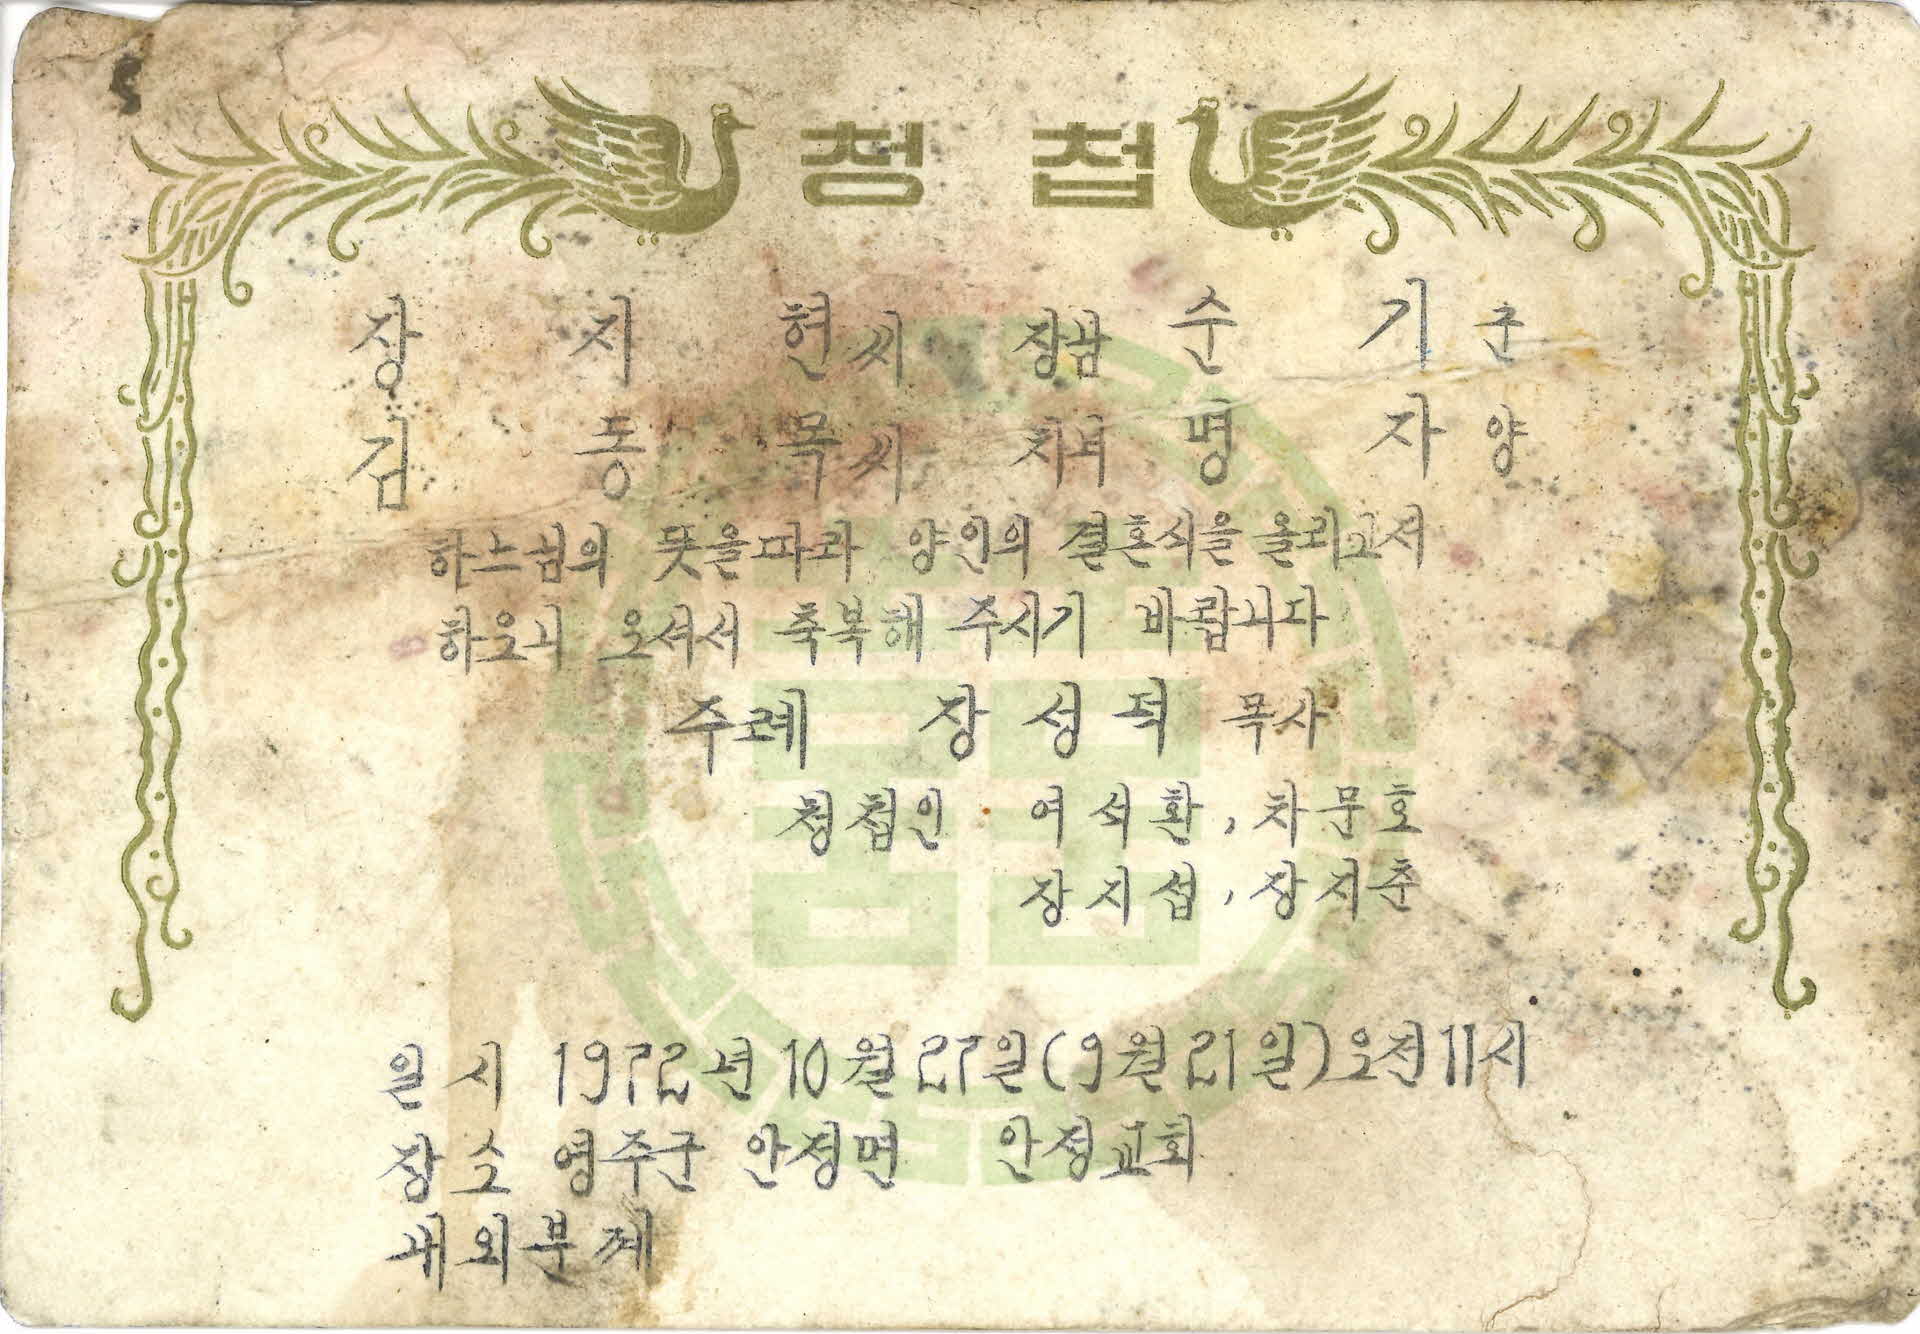 청첩
장 지 현 씨 장남 순 기 군
김 동 목 씨 차녀 명 자 양
하느님의 뜻을따라 양인의 결혼식을 올리고저
하오니 오셔서 축복해 주시기 바랍니다
주례 장성덕 목사
청첩인 여석환, 차문호
장지섭, 장지춘
일시 1972년 10월 27일(9월 21일)오전11시
장소 영주군 안정면 안정교회
내외분께
囍